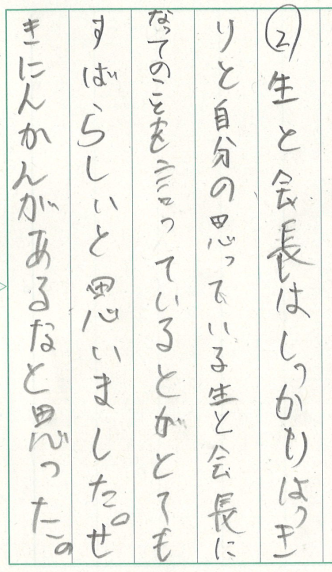 ②生と会長はしっかりはっき
りと自分の思っている生と会長に
なってのことを言っているとがとても
すばらしいと思いました。せ
きにんかんがあるなと思った。